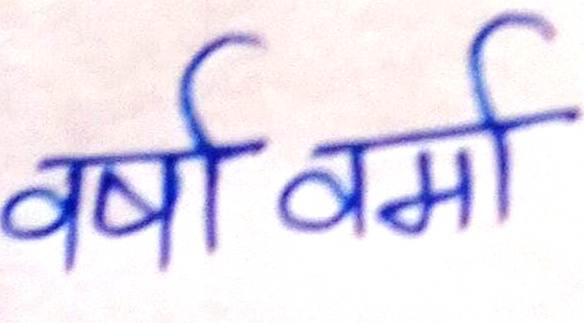 वर्षा वर्मा